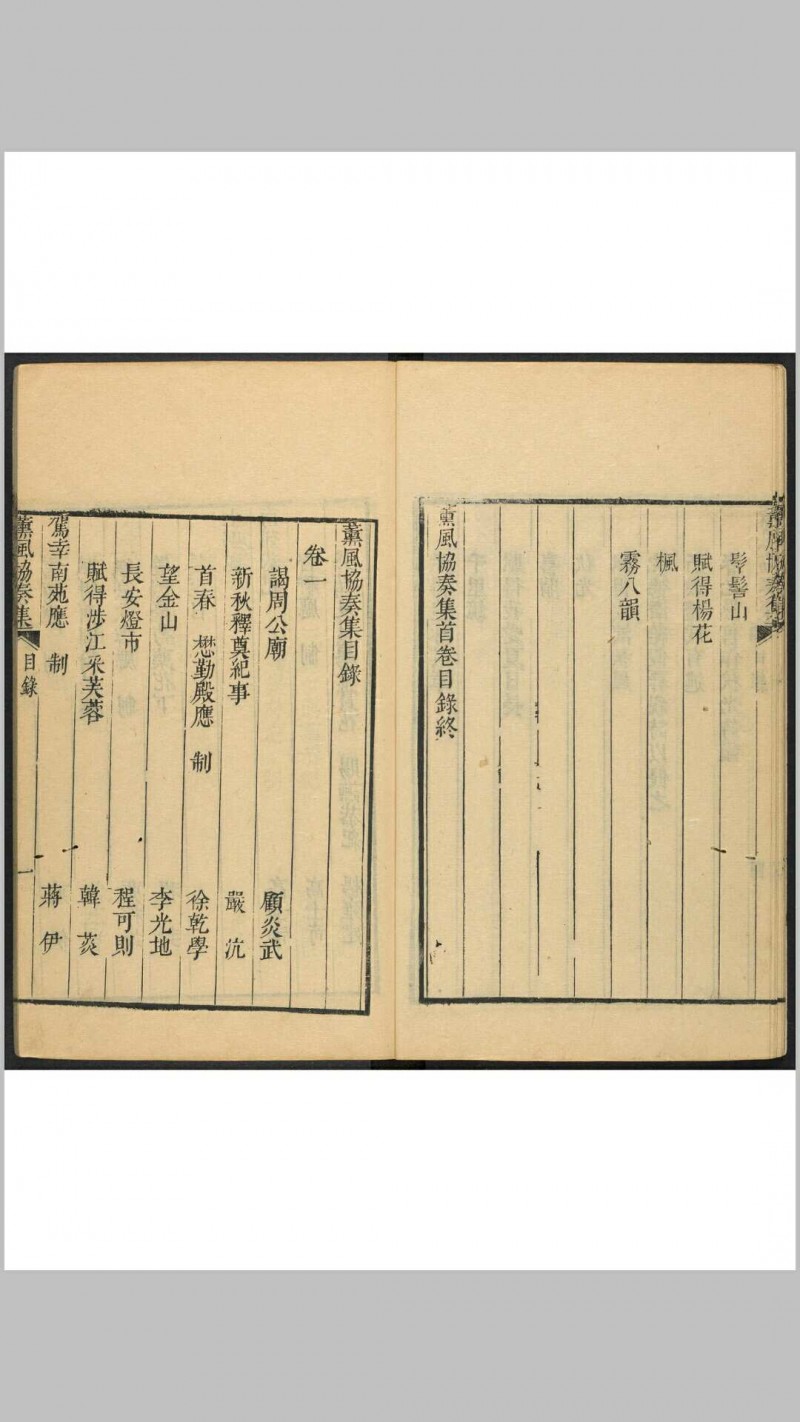 髻山
賦得楊花
楓
霧八韻
薰風協奏集首卷目錄終
薰風協奏集目錄
卷一
謁周公廟 顧炎武
新秋釋奠紀事 嚴沆
首春 懋勤殿應 制 徐乾學
望金山 李光地
長安燈市 程可則
賦得涉江采芙蓉 韓菼
駕幸南苑應 制 蔣伊
薰風協奏集 目錄 一